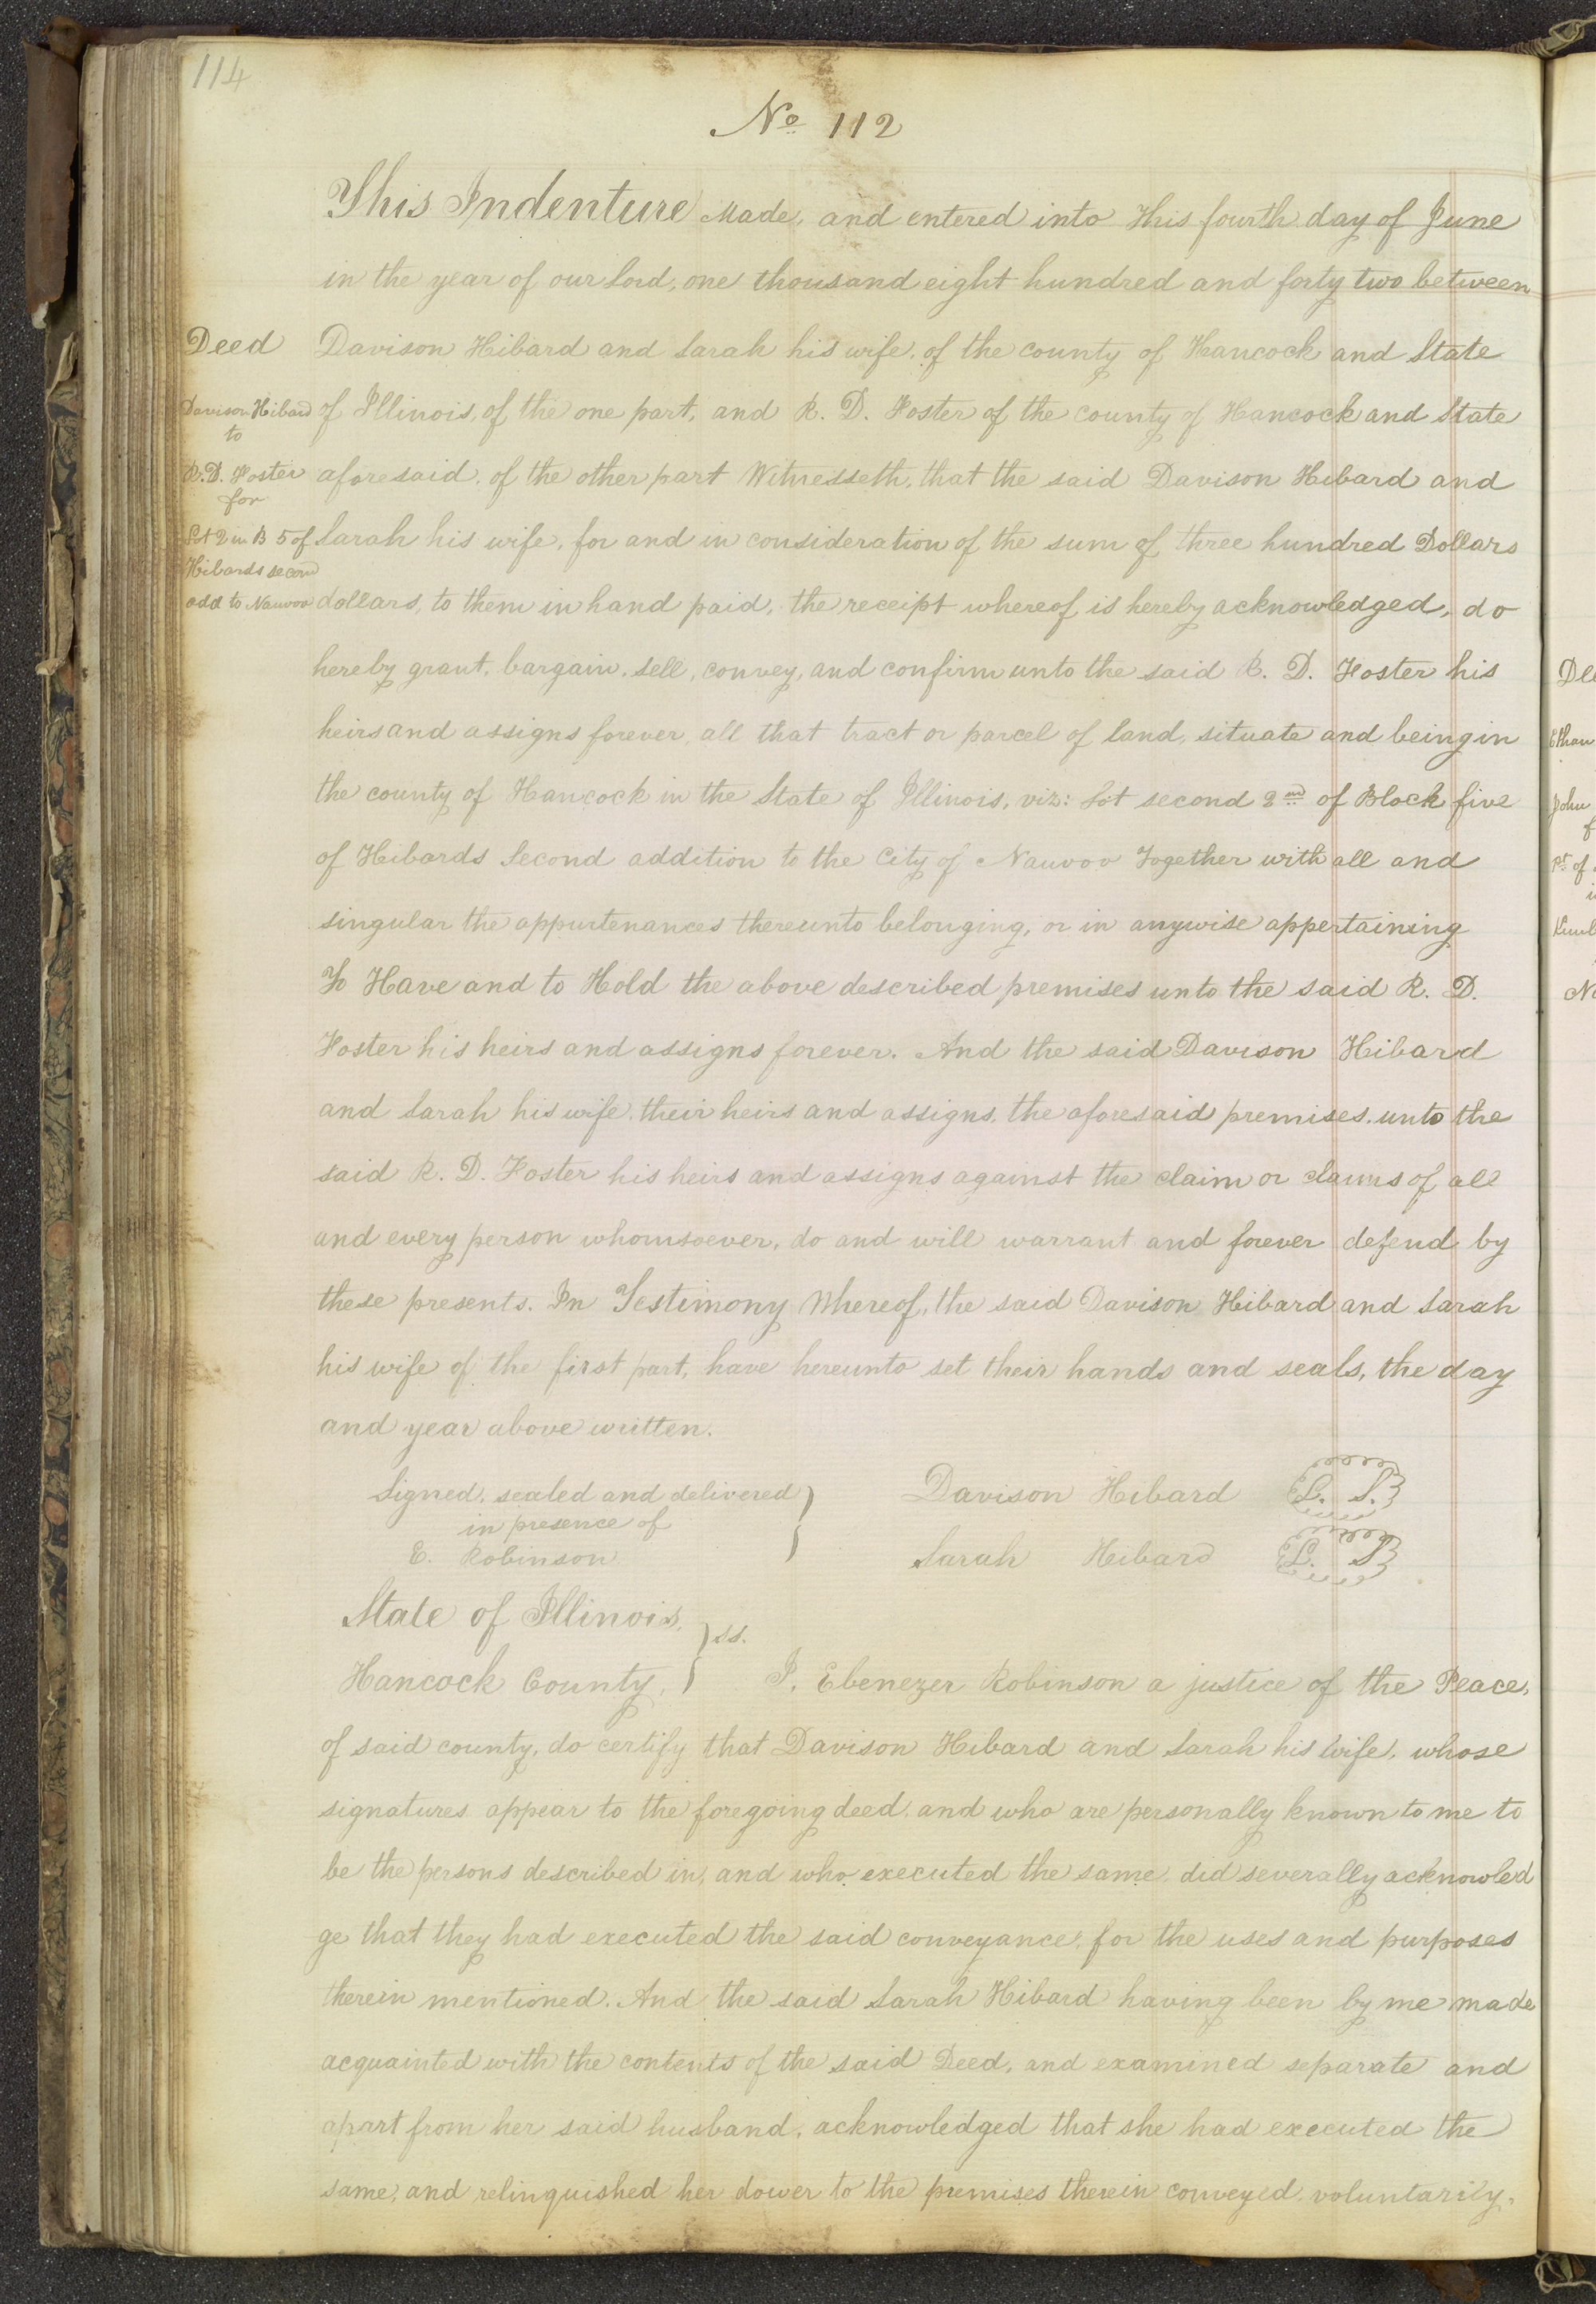 114
No 112
This Indenture Made, and entered into This fourth day of June
in the year of our Lord, one thousand eight hundred and forty two between
Deed
Davison Hibard and Sarah his wife, of the county of Hancock and State
Davison Hibard
to
of Illinois, of the one part, and R. D. Foster of the county of Hancock and State
R. D. Foster
for
aforesaid, of the other part Witnesseth, that the said Davison Hibard and
Lot 2 in B 5 of
Hibards second
Sarah his wife, for and in consideration of the sum of three hundred Dollars
add to Nauvoo
dollars, to them in hand paid, the receipt whereof is hereby acknowledged, do
hereby grant, bargain, sell, convey, and confirm unto the said R. D. Foster his
heirs and assigns forever, all that tract or parcel of land, situate and being in
the county of Hancock in the State of Illinois, viz: Lot second 2nd of Block five
of Hibards Second addition to the City of Nauvoo Together with all and
singular the appurtenances thereunto belonging, or in anywise appertaining
To Have and to Hold the above described premises unto the said R. D.
Foster his heirs and assigns forever. And the said Davison Hibard
and Sarah his wife, their heirs and assigns, the aforesaid premises, unto the
said R. D. Foster his heirs and assigns against the claim or claims of all
and every person whomsoever, do and will warrant and forever defend by
these presents. In Testimony Whereof, the said Davison Hibard and Sarah
his wife of the first part, have hereunto set their hands and seals, the day
and year above written.
Signed, sealed and delivered
in presence of
E. Robinson
Davison Hibard L. S.
Sarah Hibard L. S
State of Illinois,
Hancock County, } ss.
I, Ebenezer Robinson a justice of the Peace,
of said county, do certify that Davison Hibard and Sarah his wife, whose
signatures appear to the foregoing deed, and who are personally known to me to
be the persons described in, and who executed the same, did severally acknowled
ge that they had executed the said conveyance, for the uses and purposes
therein mentioned. And the said Sarah Hibard having been by me made
acquainted with the contents of the said Deed, and examined separate and
apart from her said husband, acknowledged that she had executed the
same, and relinquished her dower to the premises therein conveyed voluntarily,
Ethan
John
Pt of